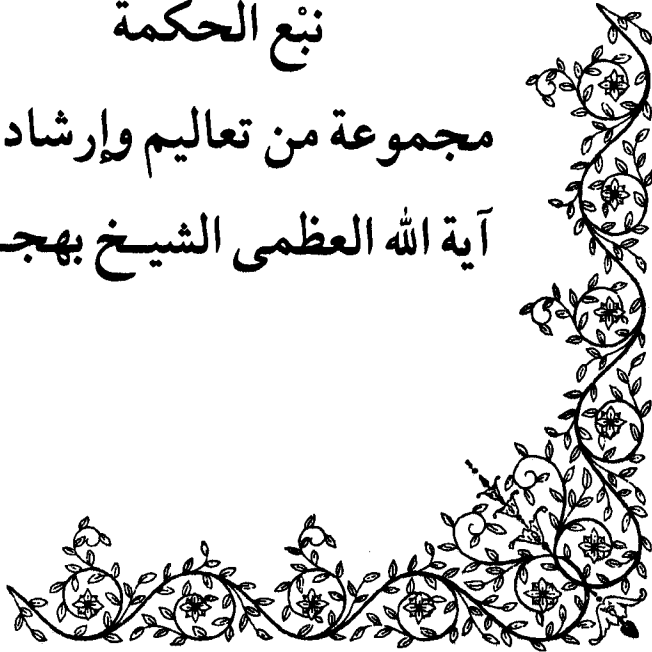 نبْع الحكمة
مجموعة من تعاليم وإرشاد
آية الله العظمى الشيـخ بهجـ